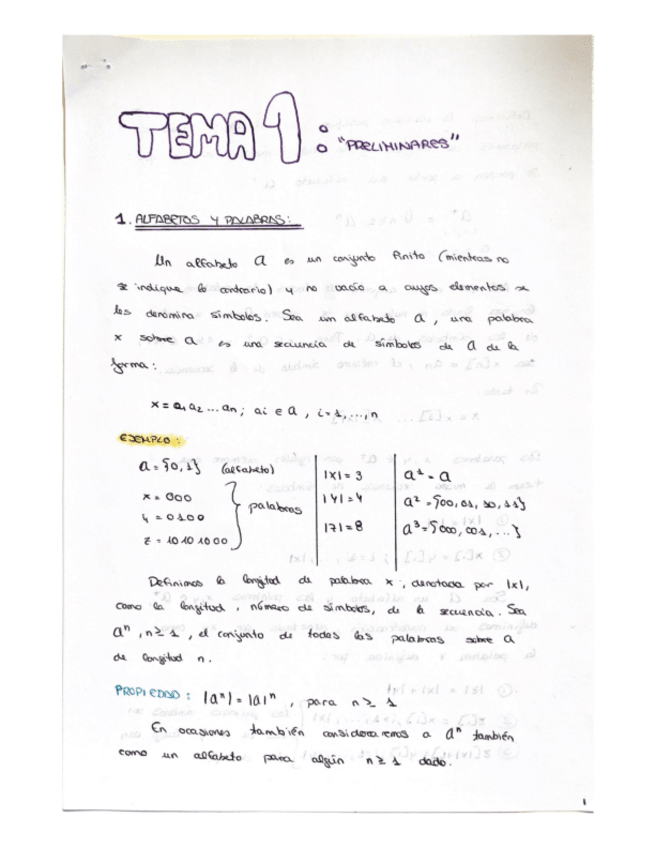 TEMA 1: "PRELIMINARES"
1. ALFABETOS Y PALABRAS:
Un alfabeto a es un conjunto finito (mientras no
se indique lo contrario) y no vacío a cuyos elementos se
les denomina símbolos. Sea un alfabeto a, una palabra
x sobre a es una secuencia de símbolos de a de la
forma:
x = a₁ a₂ ... an; ai ∈ a, i=1, ..., n
EJEMPLO:
a = {0,1} (alfabeto)
x = 000
y = 0100
z = 10101000
palabras
|x| = 3
|y| = 4
|z| = 8
a¹ = a
a² = {00, 01, 10, 11}
a³ = {000, 001, ...}
Definimos la longitud de palabra x, denotada por |x|,
como la longitud, número de símbolos, de la secuencia. Sea
aⁿ, n ≥ 1, el conjunto de todas las palabras sobre a
de longitud n.
PROPIEDAD: |aⁿ| = |a|ⁿ, para n ≥ 1
En ocasiones también consideraremos a aⁿ también
como un alfabeto para algún n ≥ 1 dado.
1